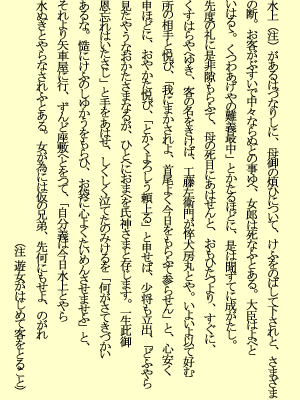 水上（注）があるはづなりしに、母御の煩ひについて、けふをのばして下されと、さまざま
の断。お客がぶすいで中々ならぬとの事ゆへ、女郎は死なふとある。大臣はよべと
いはる。くつわあげやの難義最中」とかたるほどに、是は聞すてに成がたし。
先度の礼に是非聞もらふて、母の死目にあはせんと、おもひたつより、すぐに、
くすはらやへゆき、客の名をきけば、工藤左衛門が忰犬房丸とや。いよいよ以て好む
所の相手と悦び、「我にまかされよ、首尾よく今日をもらふて参らせん」と、心安く
申ほどに、おやかた悦び、「とかくよろしう頼上る」と申せば、少将も立出、「どふやら
見たやうなおかたさまなるが、ひとへにおまへを氏神さまと存じます。一生此御
恩忘れはいたさじ」と手をあはせ、しくしく泣てたのみけるを、「何がさてきづかい
あるな。慥にけふのしゆかうをもらひ、お袋に心よくたいめんさせませふ」と、
それより矢車屋に行、ずんど座敷へとをつて、「自分義は今日水上とやら
水ぬきとやらなされふとある。女が為には仮の兄弟、先何にもせよ、のがれ
（注　遊女がはじめて客をとること）